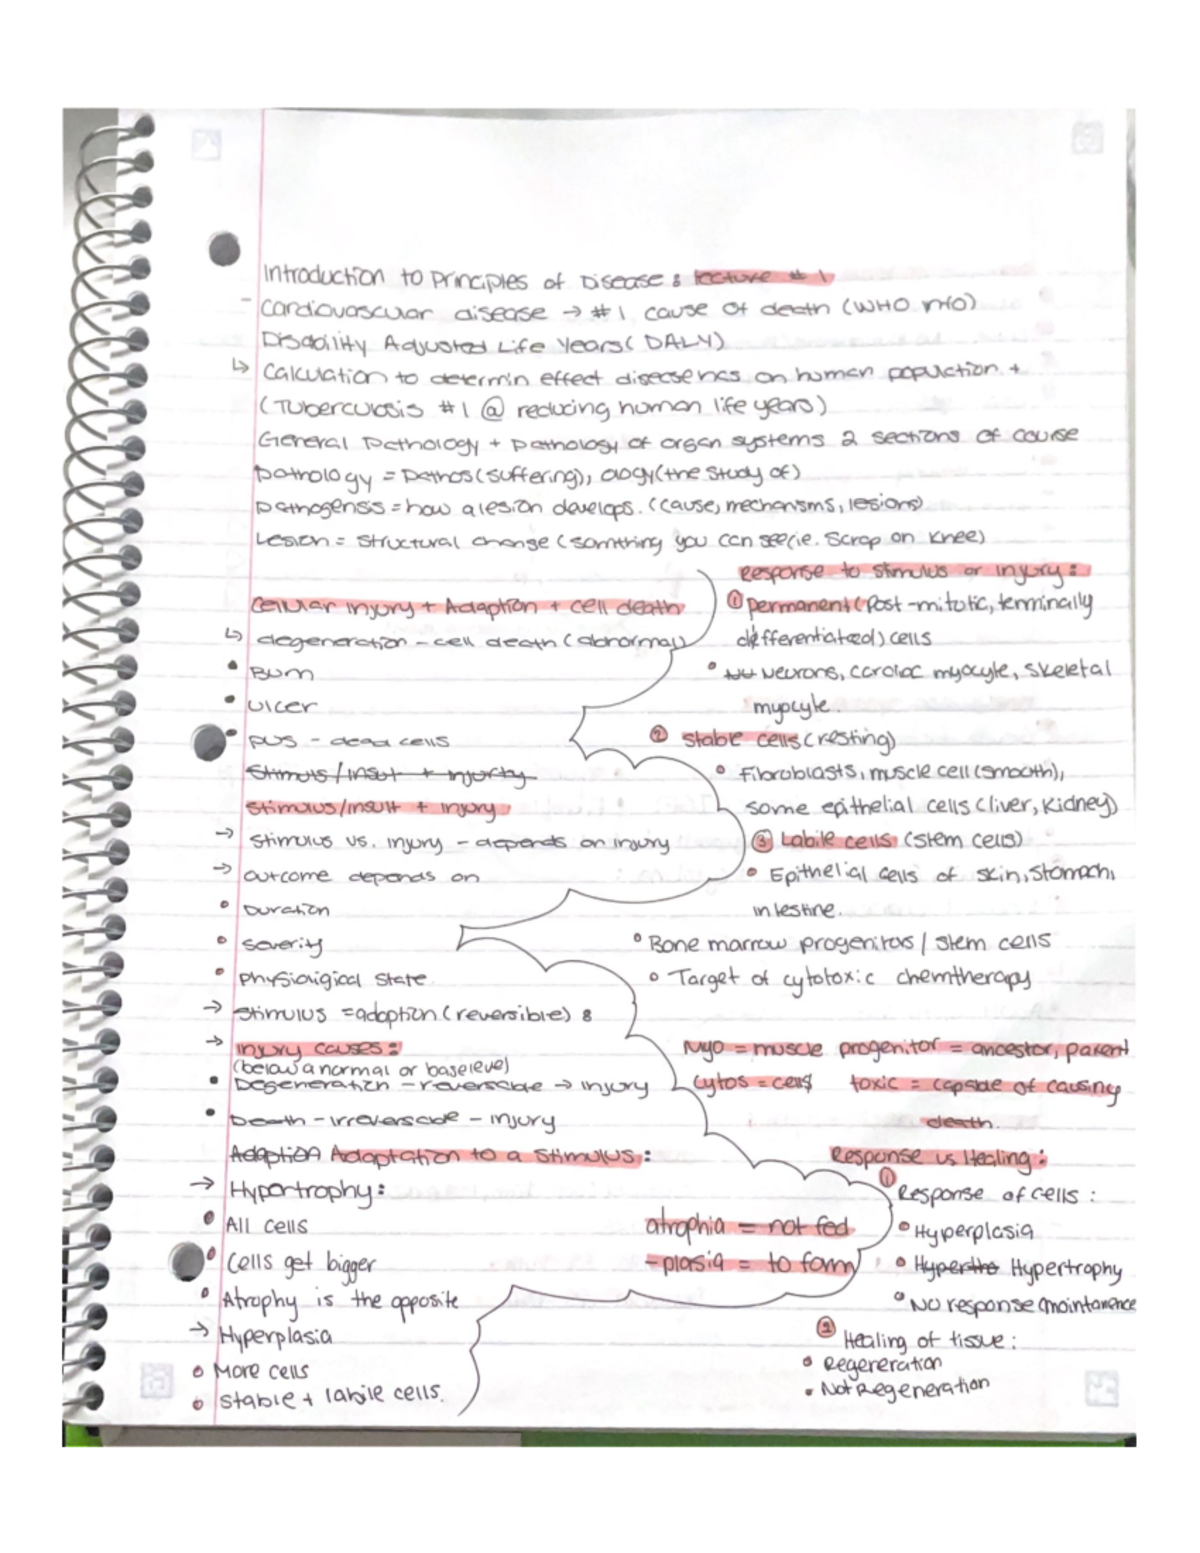 Introduction to Principles of Disease: lecture #1
- Cardiovascular disease → #1 cause of death (WHO info)
Disability Adjusted Life Years (DALY)
↳ Calculation to determin effect disease has on human population. +
(Tuberculosis #1 @ reducing human life years)
General Pathology + pathology of organ systems 2 sections of course
pathology = Pathos (suffering), ology (the study of)
pathogensis = how a lesion develops. (cause, mechanisms, lesions)
Lesion = structural change (somthing you can see (ie. Scrap on knee)
Cellular Injury + Adaption + cell death
↳ degeneration - cell death (abnormal)
• Burn
• ulcer
• pus - dead cells
Stimuls/Insut + injurty
Stimulus/insult + injury
→ Stimulus vs. injury - depends on injury
→ outcome depends on
• Duration
• Severity
• Physioigical state.
→ Stimulus = adaption (reversible) 8
→ Injury causes:
(below a normal or base level)
• Degeneration - reversable → injury
• Death - irreversable - injury
Adaption Adaptation to a stimulus:
→ Hypertrophy:
• All cells
• Cells get bigger
• Atrophy is the opposite
→ Hyperplasia
• More cells
• Stable + labile cells.
Response to stimulus or injury:
① permanent (Post-mitotic, terminally
differentiated) cells
• Neurons, cardiac myocyte, skeletal
myocyte.
② Stable cells (resting)
• Fibroblasts, muscle cell (smooth),
some epithelial cells (liver, kidney)
③ Labile cells (stem cells)
• Epithelial cells of skin, stomach,
intestine.
• Bone marrow progenitors / stem cells
• Target of cytotoxic chemtherapy
Myo = muscle progenitor = ancestor, parent
cytos = cells toxic = capable of causing
death.
Response vs Healing:
① Response of cells:
• Hyperplasia
• Hypertro Hypertrophy
• NO response (maintanence
atrophia = not fed
-plasia = to form
② Healing of tissue:
• Regeneration
• Not Regeneration